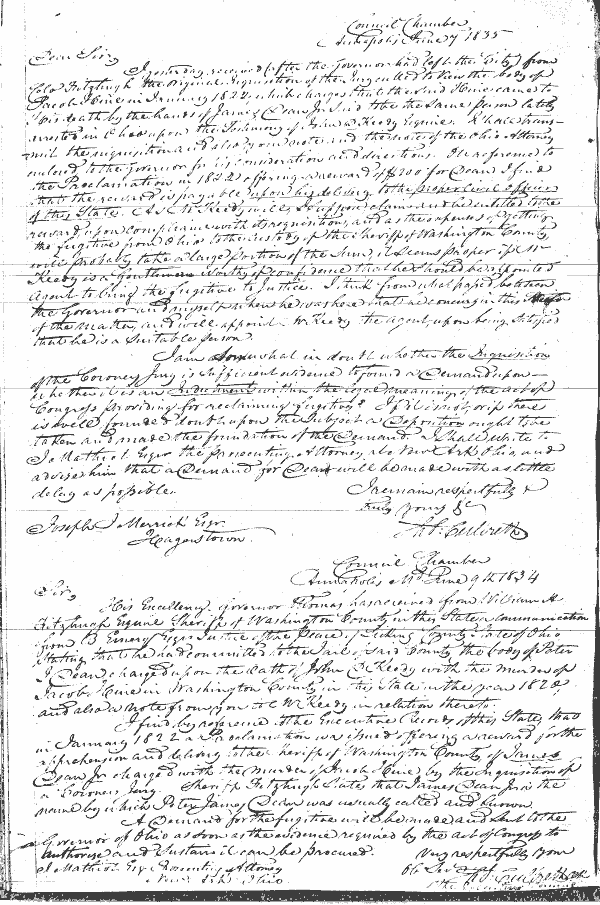 Council Chamber
Annapolis June 7 1835
Dear Sir,
I yesterday received (after the Governor had left the City) from
Colo Fitzhugh the original Inquisition of the Jury called to view the body of
Jacob Hine in January 1822, which charges that the said Hine came to
his death by the hands of James Dean Jr. said to be the same person lately
arrested in Ohio upon the testimony of John D Keedy Esquire. I have trans-
mit the inquisition and also your note and the note of the Ohio Attorney
enclosed to the Governor for his consideration and directions. On reference to
the Proclamation in 1822 offering a reward of $200 for Dean I find
that the reward is payable upon his delivery to the proper civil officer
of this State. As Mr Keedy will, I suppose claim and be entitled to the
reward upon compliance with its requisitions, and as the expenses of getting
the fugitive from Ohio to the custody of the Sheriff of Washington County
will probably take a large portion of the sum, it seems proper if Mr
Keedy is a Gentleman worthy of confidence that he should be appointed
agent to bring the fugitive to Justice. I think from what passed between
the Governor and myself when he was here that he concurs in this
of the matter, and will appoint Mr Keedy the agent, upon being satisfied
that he is a suitable person.
I am somewhat in doubt whether the Inquisition
of the Coroners Jury is sufficient evidence to found a Demand upon -
whether it is an Indictment within the legal meaning of the act of
Congress providing for reclaiming Fugitives? If it is not, or if there
is well founded doubt upon the subject a Deposition ought to be
taken and made the foundation of the Demand. I shall write to
J. Mathiot Esqr the prosecuting Attorney at Newark Ohio and
advise him that a Demand for Dean will be made with as little
delay as possible.
I remain respectfully &
truly yours &c
Joseph J Merrick Esqr
Hagerstown
Thos. Culbreth
Council Chamber
Annapolis, Md. June 9th 1834
Sir,
His Excellency Governor Thomas has received from William H
Fitzhugh Esquire Sheriff of Washington County in this State a communication
from B Emery Esqr Justice of the Peace of Licking County State of Ohio
stating that he had committed to the Jail of said County the body of Peter
J Dean, charged upon the Oath of John D Keedy with the murder of
Jacob Hine in Washington County in this State in the year 1822,
and also a note from you to Mr Keedy in relation thereto.
I find by reference to the Executive Records of this State, that
in January 1822 a Proclamation was issued offering a reward for the
apprehension and delivery to the Sheriff of Washington County of James
Dean Jr charged with the murder of Jacob Hine, by the Inquisition of
a Coroners Jury. Sheriff Fitzhugh States that James Dean Jr is the
name by which Peter James Dean was usually called and known.
A Demand for the fugitive will be made and sent to the
Governor of Ohio as soon as the evidence required by the act of Congress to
authorise and sustain it can be procured.
Very respectfully your
Ob Servt
J Mathiot Esqr Prosecuting Attorney
Newark Ohio
Th. Culbreth